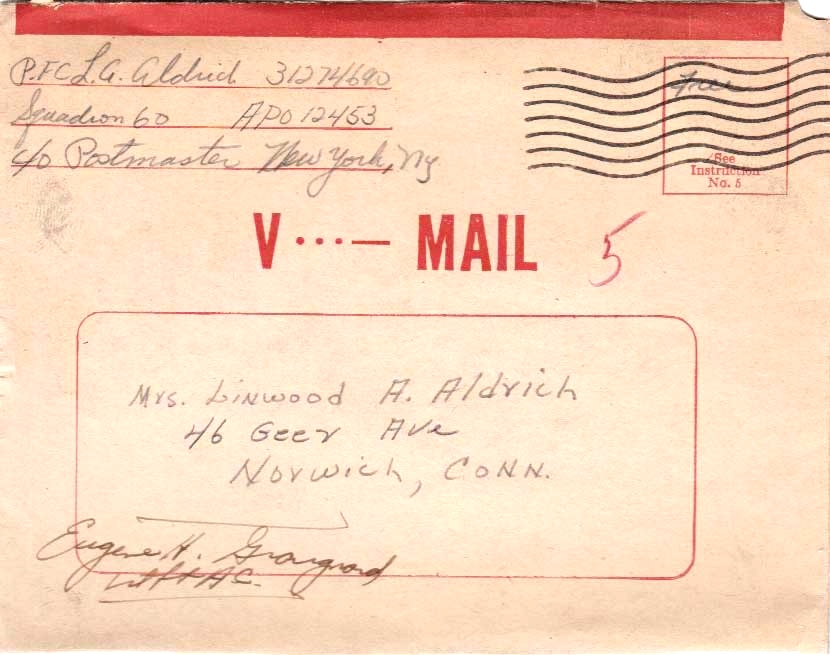 P.F.C. L. A. Aldrich 31274690
Squadron 60 APO 12453
c/o Postmaster New York, Ny
Free
See
Instruction
No. 5
V ···— MAIL
5
Mrs. Linwood A. Aldrich
46 Geer Ave
Norwich, Conn.
Eugene H.